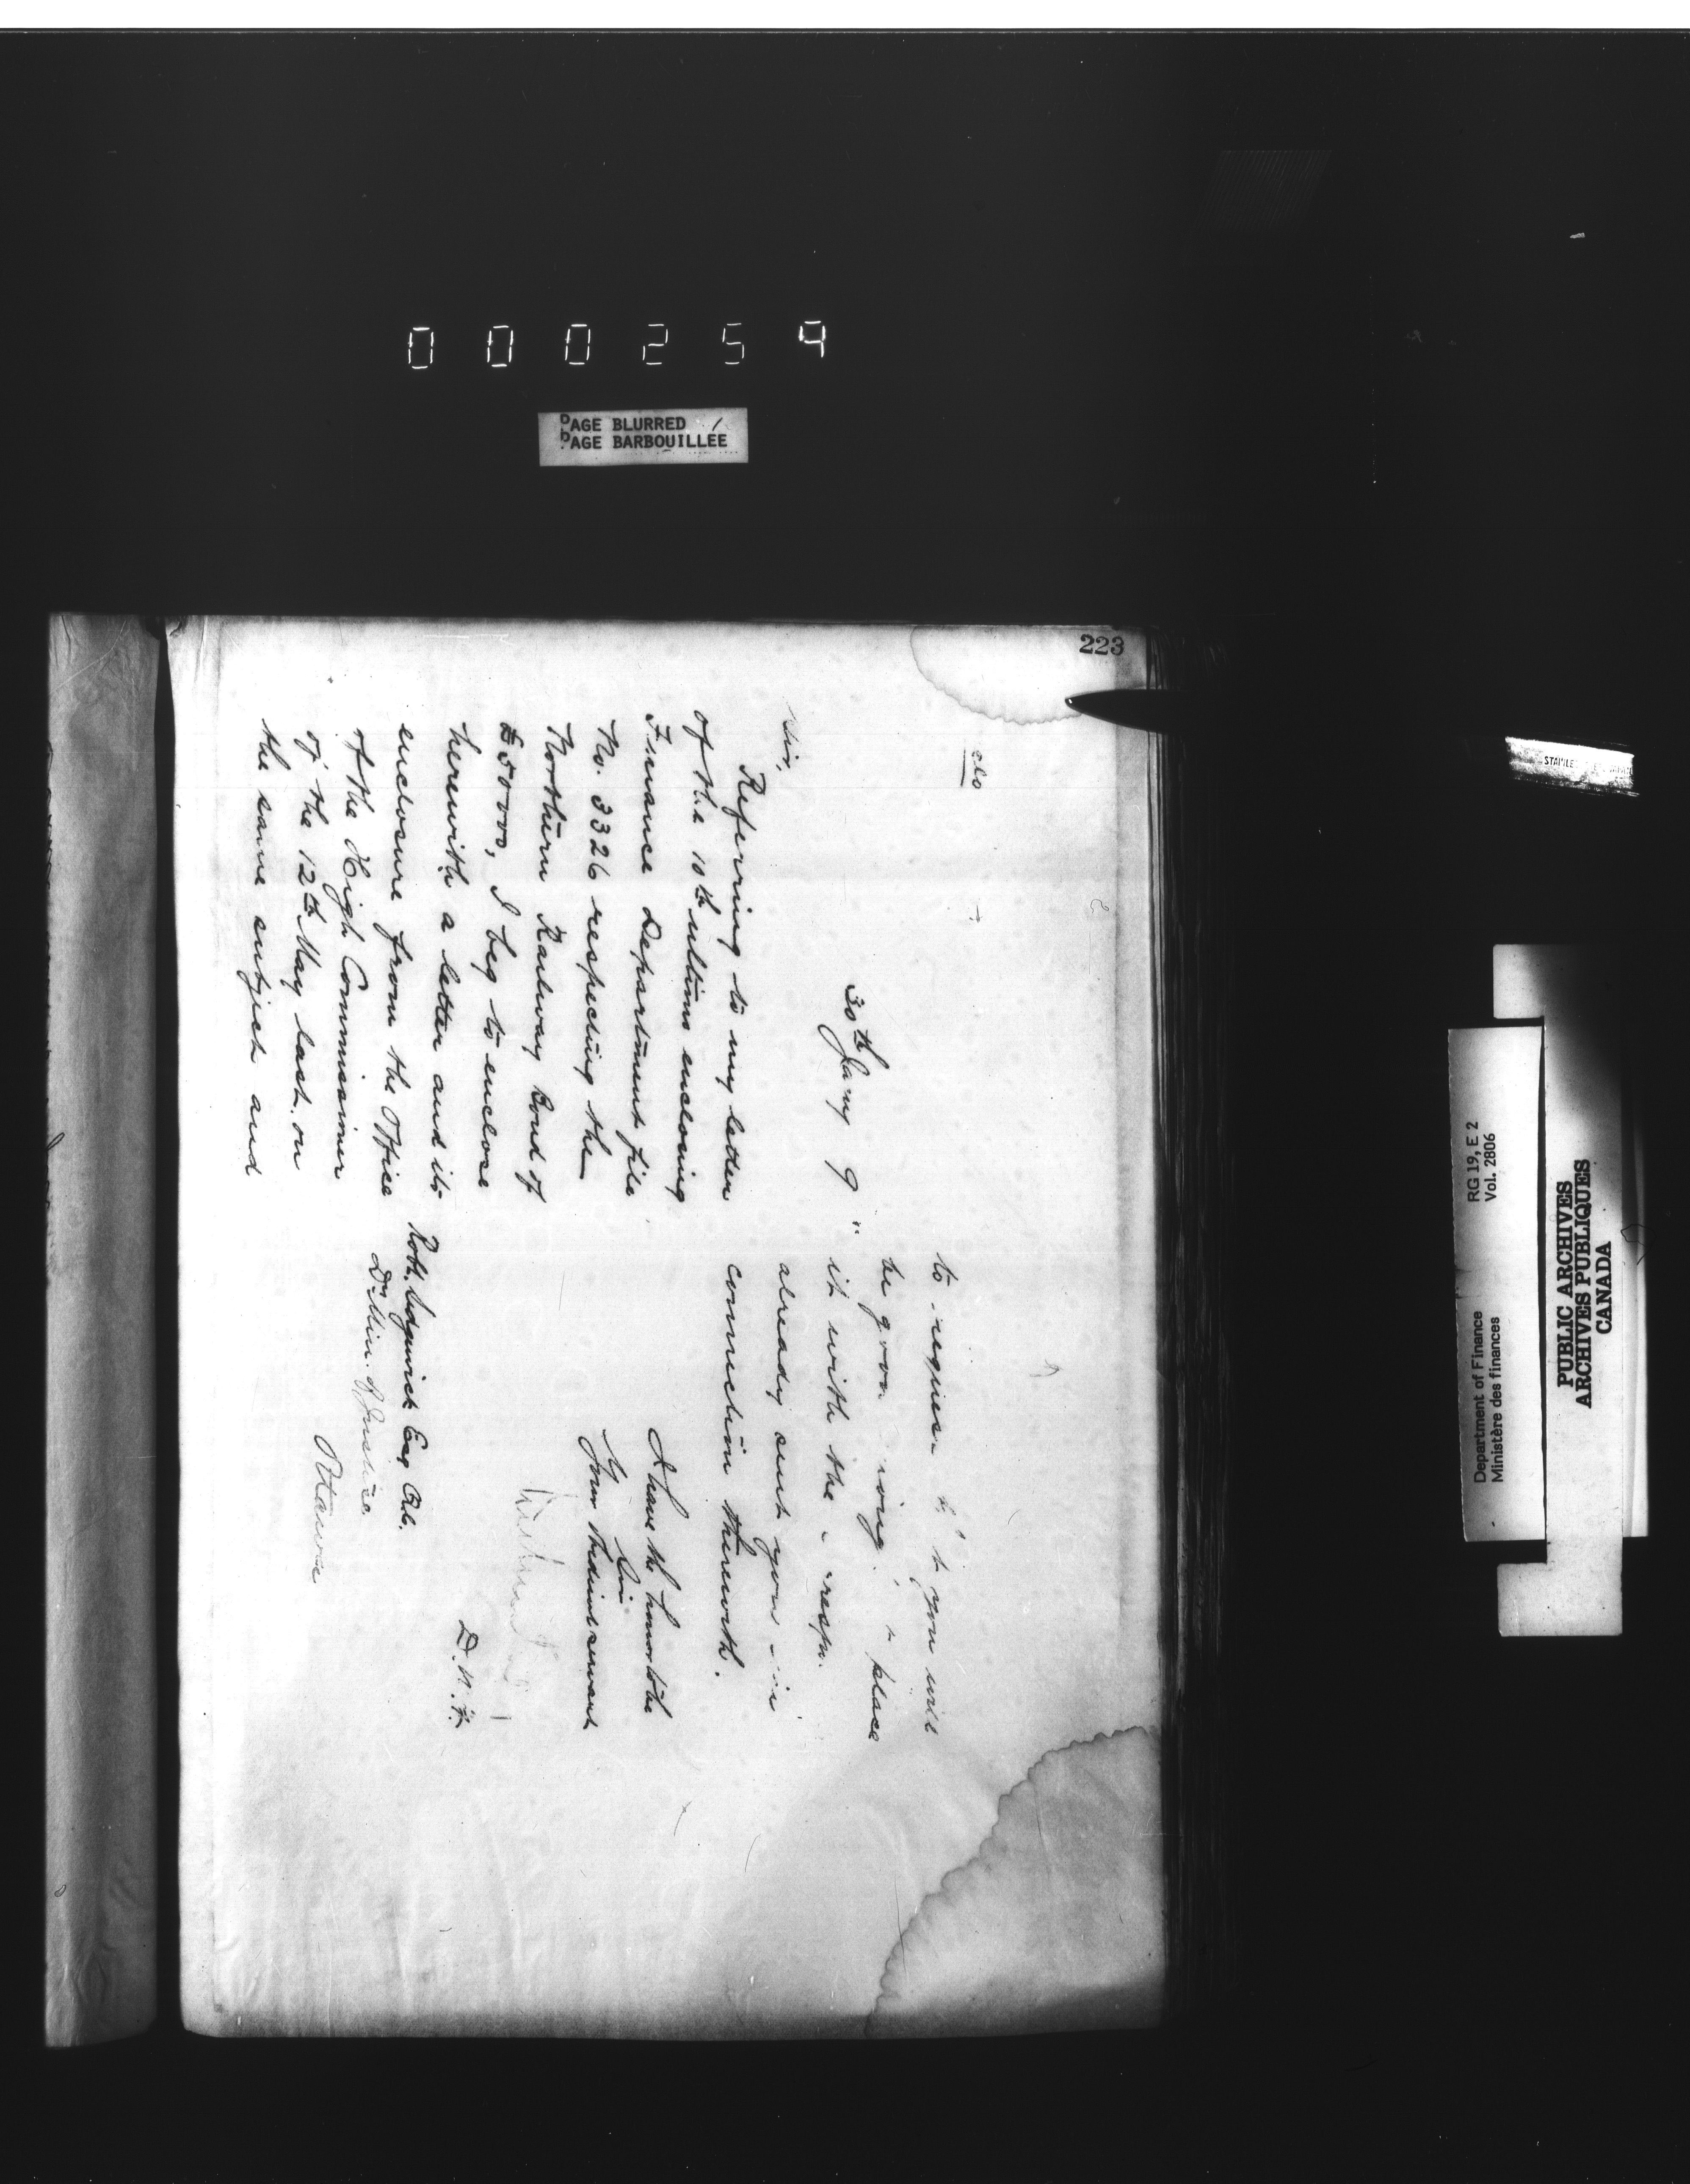 000254
PAGE BLURRED
PAGE BARBOUILLÉE
223
30th Jany 9
Sir,
Referring to my letter
of the 10th ultimo enclosing
Finance Department file
No. 3326 respecting the
Northern Railway Bond of
£50000, I beg to enclose
herewith a letter and its
enclosure from the Office
of the High Commissioner
of the 12th May last on
the same subject and
to you will
be place
it with the
already sent you in
connection therewith.
I have the honor to be
Sir
Your Obedient servant
D.M.F.
Robt. Sedgewick Esq Q.C.
Dy. Min. of Justice
Ottawa
RG 19, E 2
Vol. 2806
Department of Finance
Ministère des finances
PUBLIC ARCHIVES
ARCHIVES PUBLIQUES
CANADA